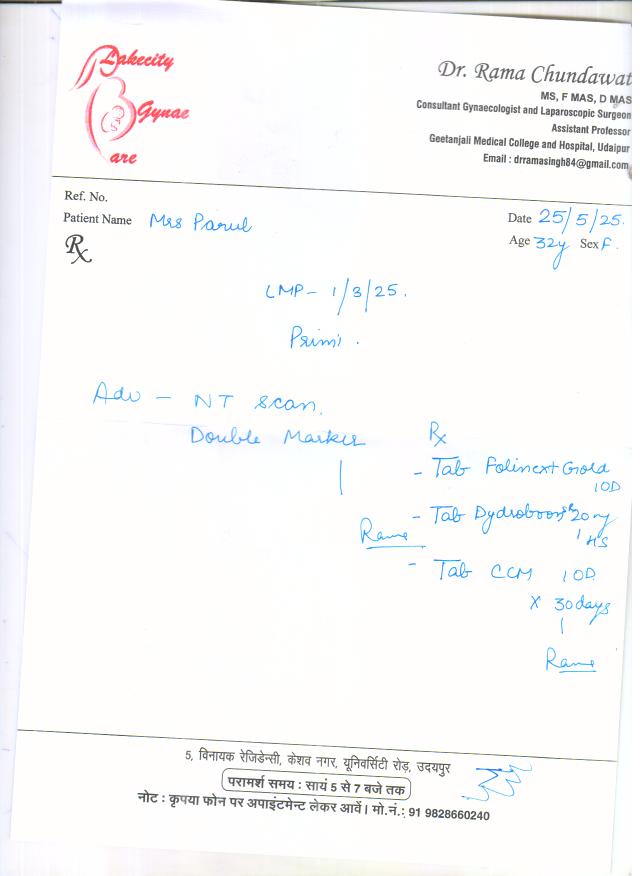 Lakecity
Gynae
Care
Dr. Rama Chundawat
MS, F MAS, D MAS
Consultant Gynaecologist and Laparoscopic Surgeon
Assistant Professor
Geetanjali Medical College and Hospital, Udaipur
Email : drramasingh84@gmail.com
Ref. No.
Patient Name Mrs Parul
Date 25/5/25.
Age 32y Sex F.
Rx
LMP - 1/3/25.
Primi.
Adv - NT scan.
Double Marker
Rx
- Tab Folinext Gold
1OD
- Tab Dydroboost 20 mg
1 HS
Rama
- Tab CCM 1OD
x 30 days
Rama
5, विनायक रेजिडेन्सी, केशव नगर, यूनिवर्सिटी रोड़, उदयपुर
परामर्श समय : सायं 5 से 7 बजे तक
नोट : कृपया फोन पर अपाइंटमेन्ट लेकर आवें। मो.नं.: 91 9828660240